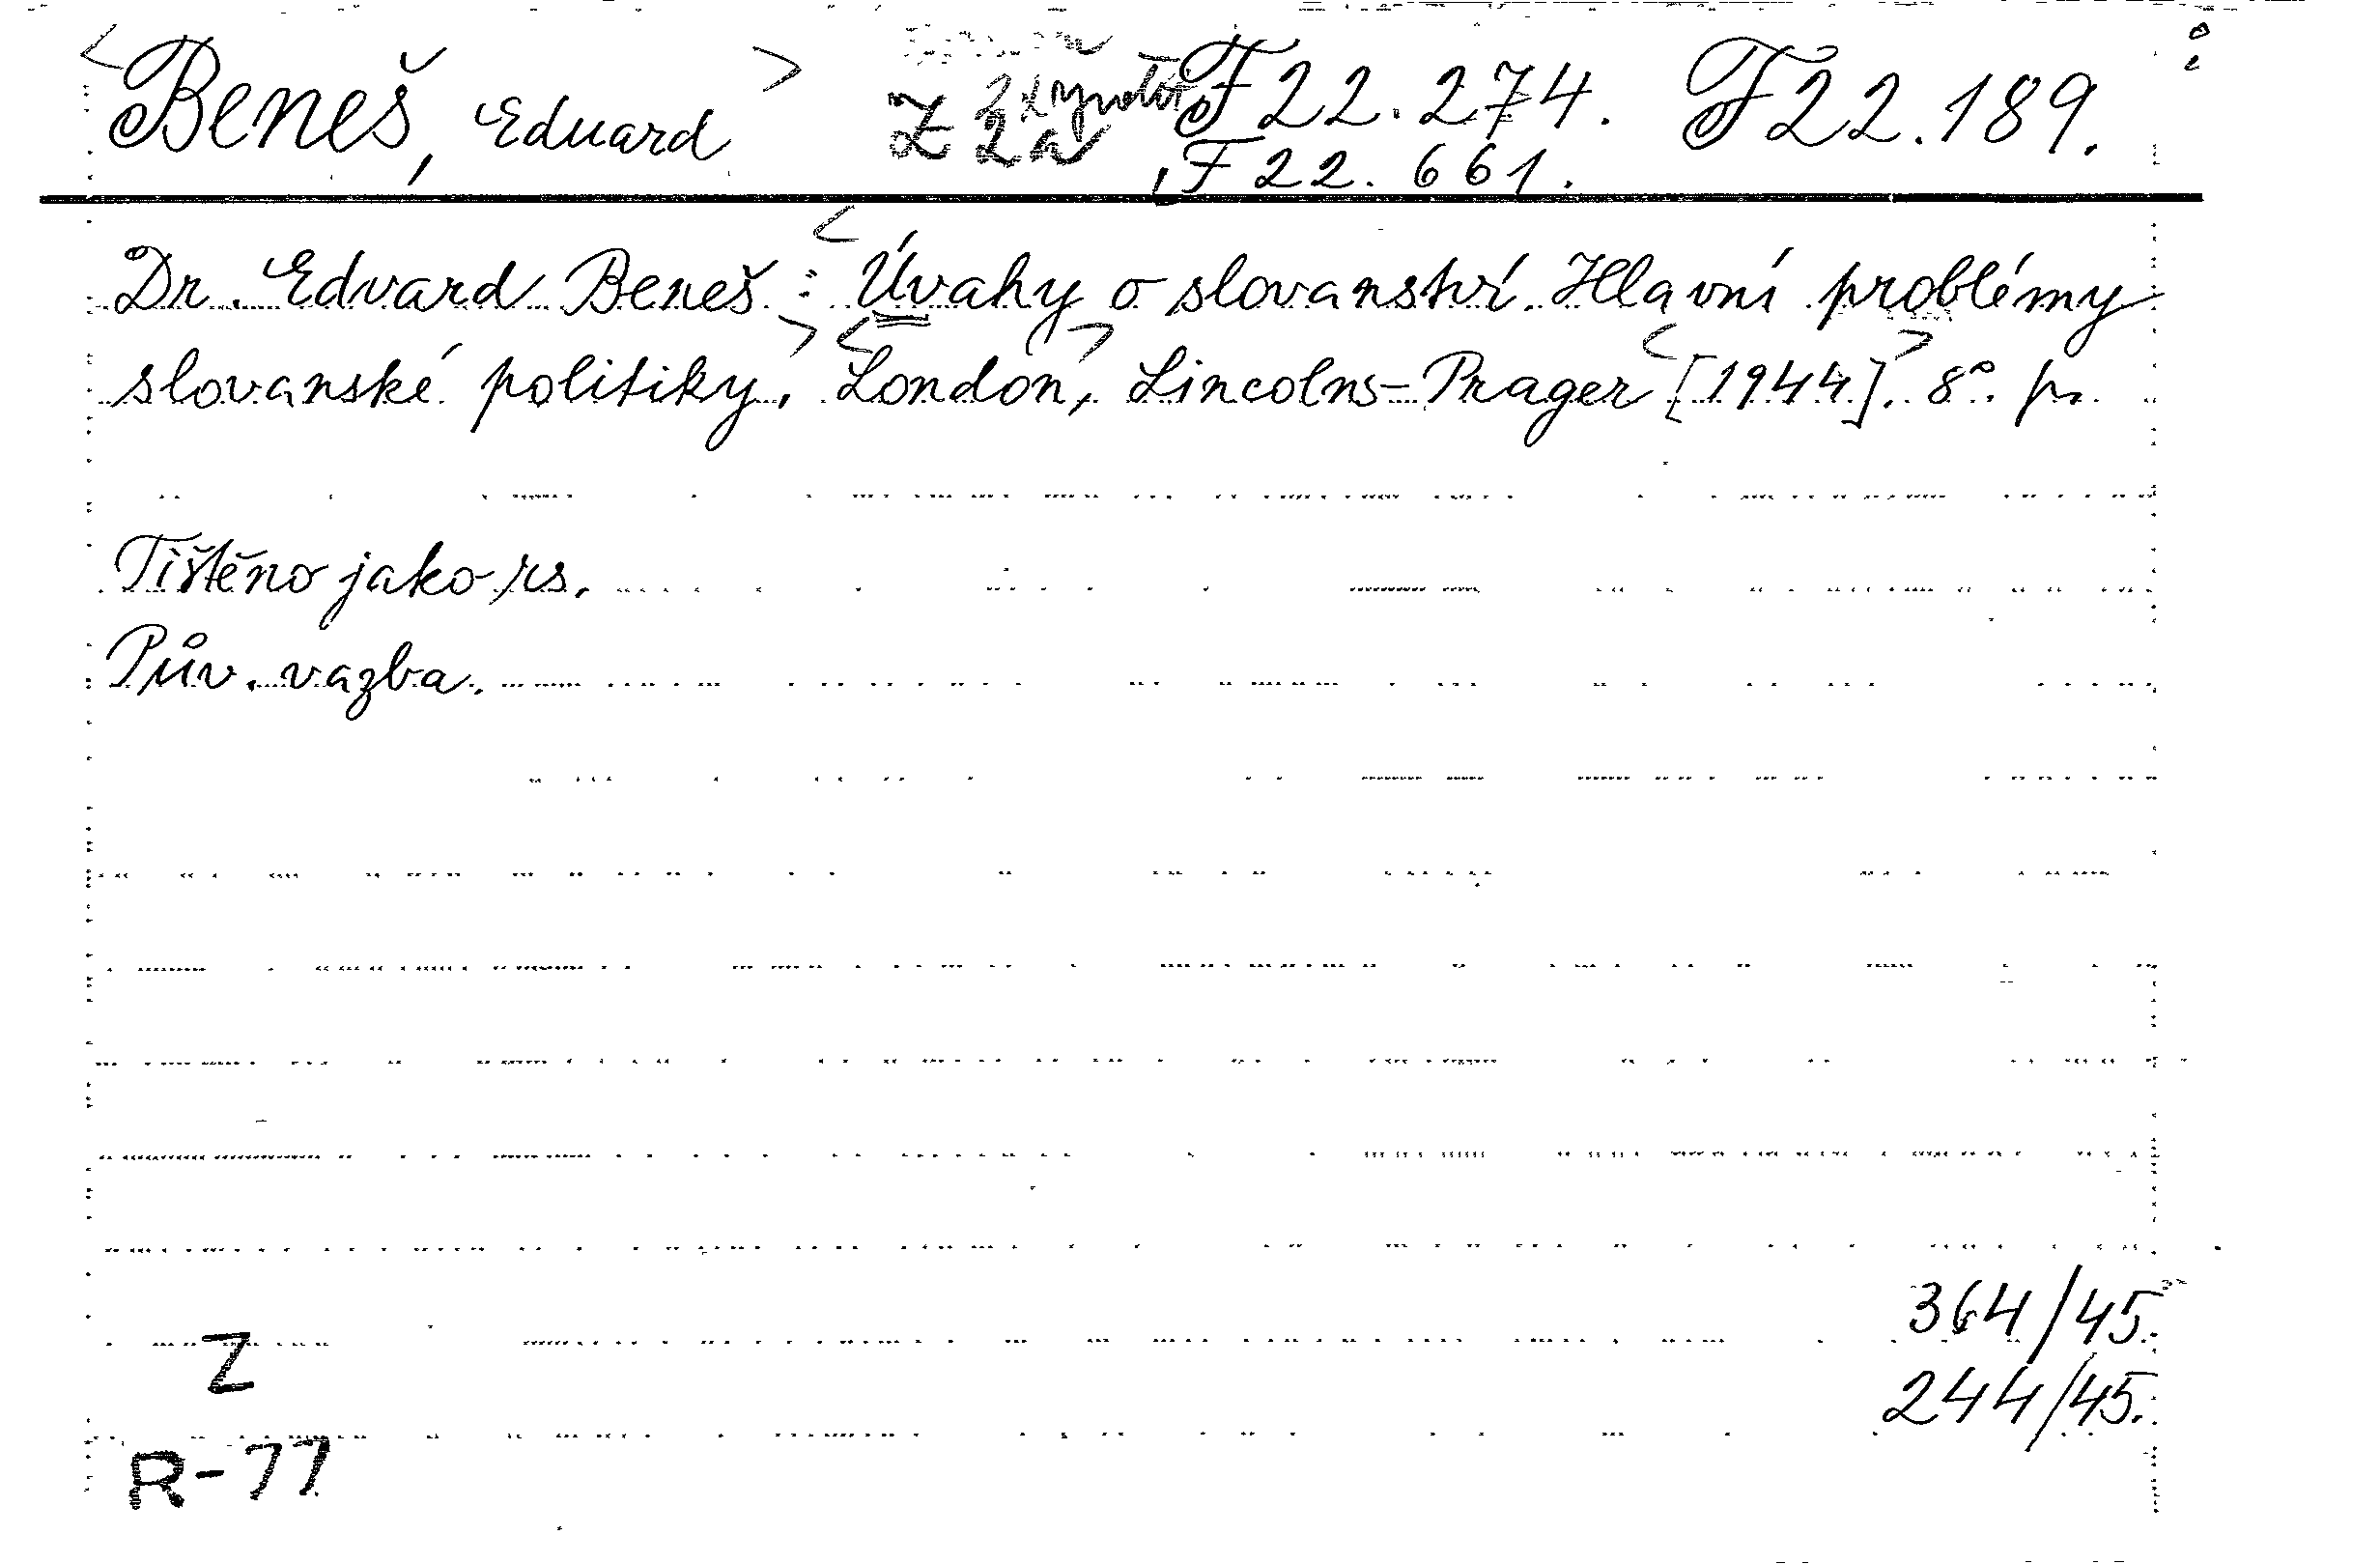 <Beneš, Eduard> F 22.274. F 22.189.
Z 2a F 22.661.
Dr. Edvard Beneš: <Úvahy o slovanství. Hlavní problémy
slovanské politiky.> <London>, Lincolns-Prager <[1944].> 8°.
Tištěno jako rs.
Pův. vazba.
364/45.
Z
244/45.
R-77